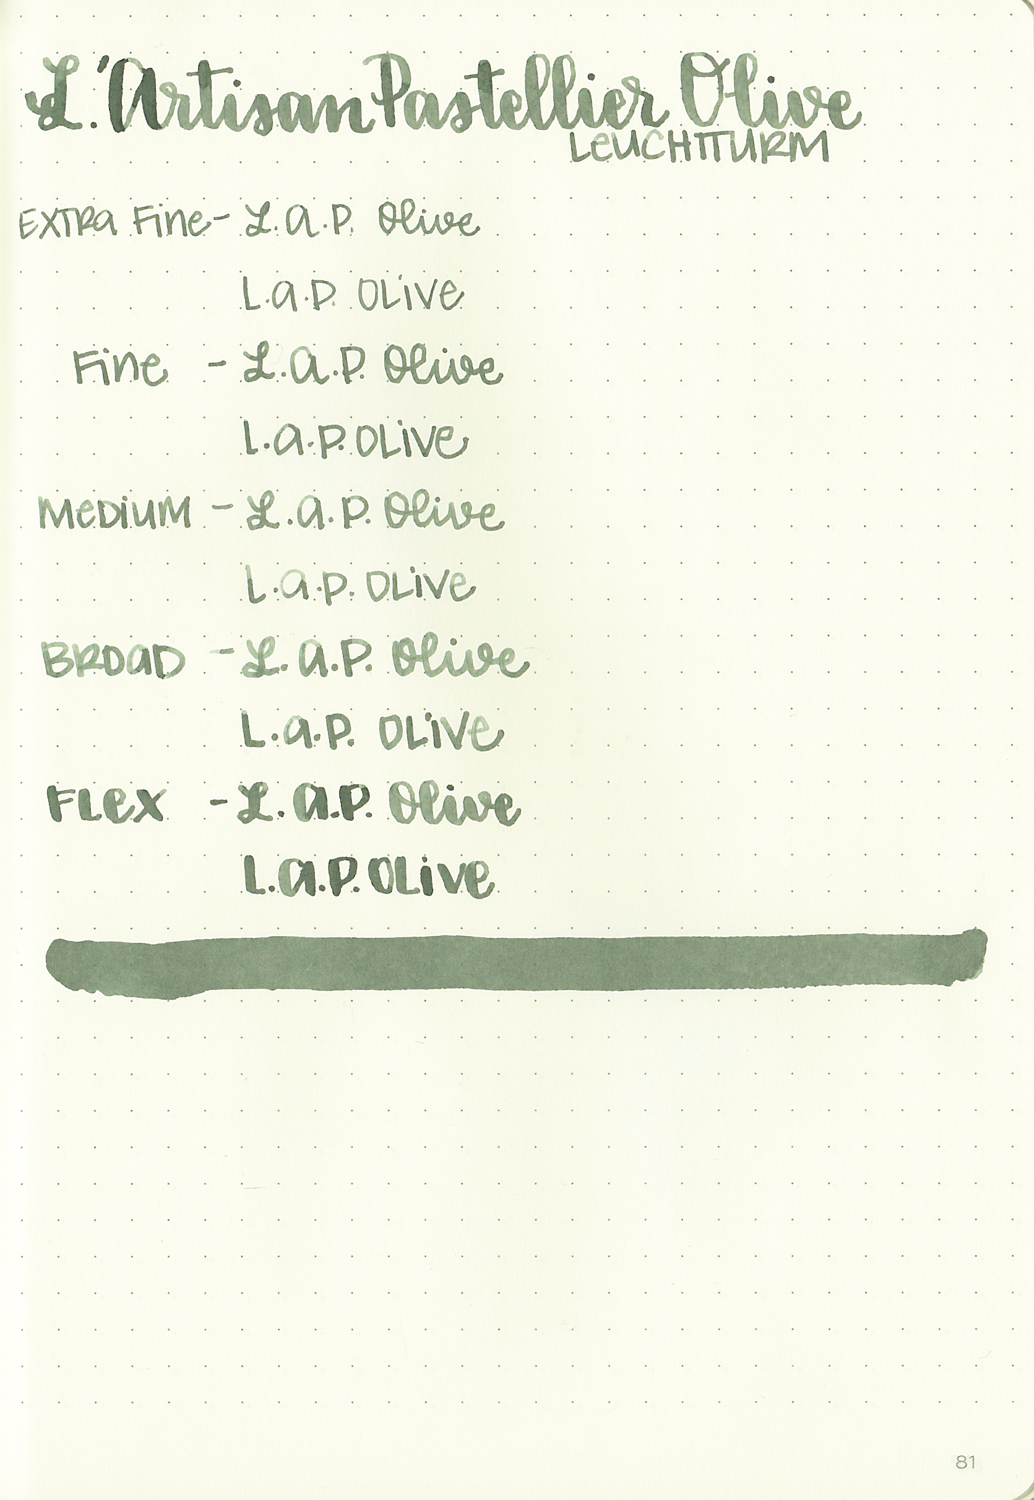 L'Artisan Pastellier Olive
LEUCHTTURM
EXTRA Fine - L.A.P. Olive
L.A.P. OLIVE
Fine - L.A.P. Olive
L.A.P. OLIVE
MEDIUM - L.A.P. Olive
L.A.P. OLIVE
BROAD - L.A.P. Olive
L.A.P. OLIVE
FLEX - L.A.P. Olive
L.A.P. OLIVE
81